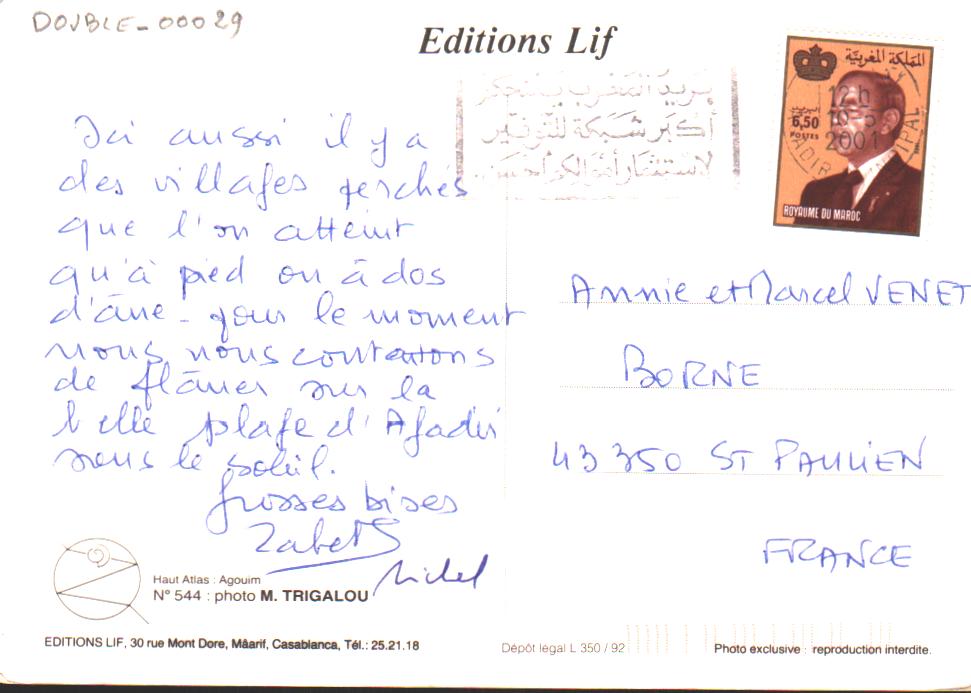 DOUBLE_00029
Editions Lif
المملكة المغربية
6,50
POSTES
ROYAUME DU MAROC
12h
10-5
2001
بريد المغرب
أكبر شبكة للتوفير
لاستثمار أموالكم أحسن
Ici aussi il y a
des villages perchés
que l'on atteint
qu'à pied ou à dos
d'âne - pour le moment
nous nous contentons
de flâner sur la
belle plage d'Agadir
sous le soleil.
Grosses bises
Zabeth
Michel
Annie et Marcel VENET
BORNE
43 350 ST PAULIEN
FRANCE
Haut Atlas : Agouim
N° 544 : photo M. TRIGALOU
EDITIONS LIF, 30 rue Mont Dore, Mâarif, Casablanca, Tél.: 25.21.18
Dépôt légal L 350 / 92
Photo exclusive : reproduction interdite.